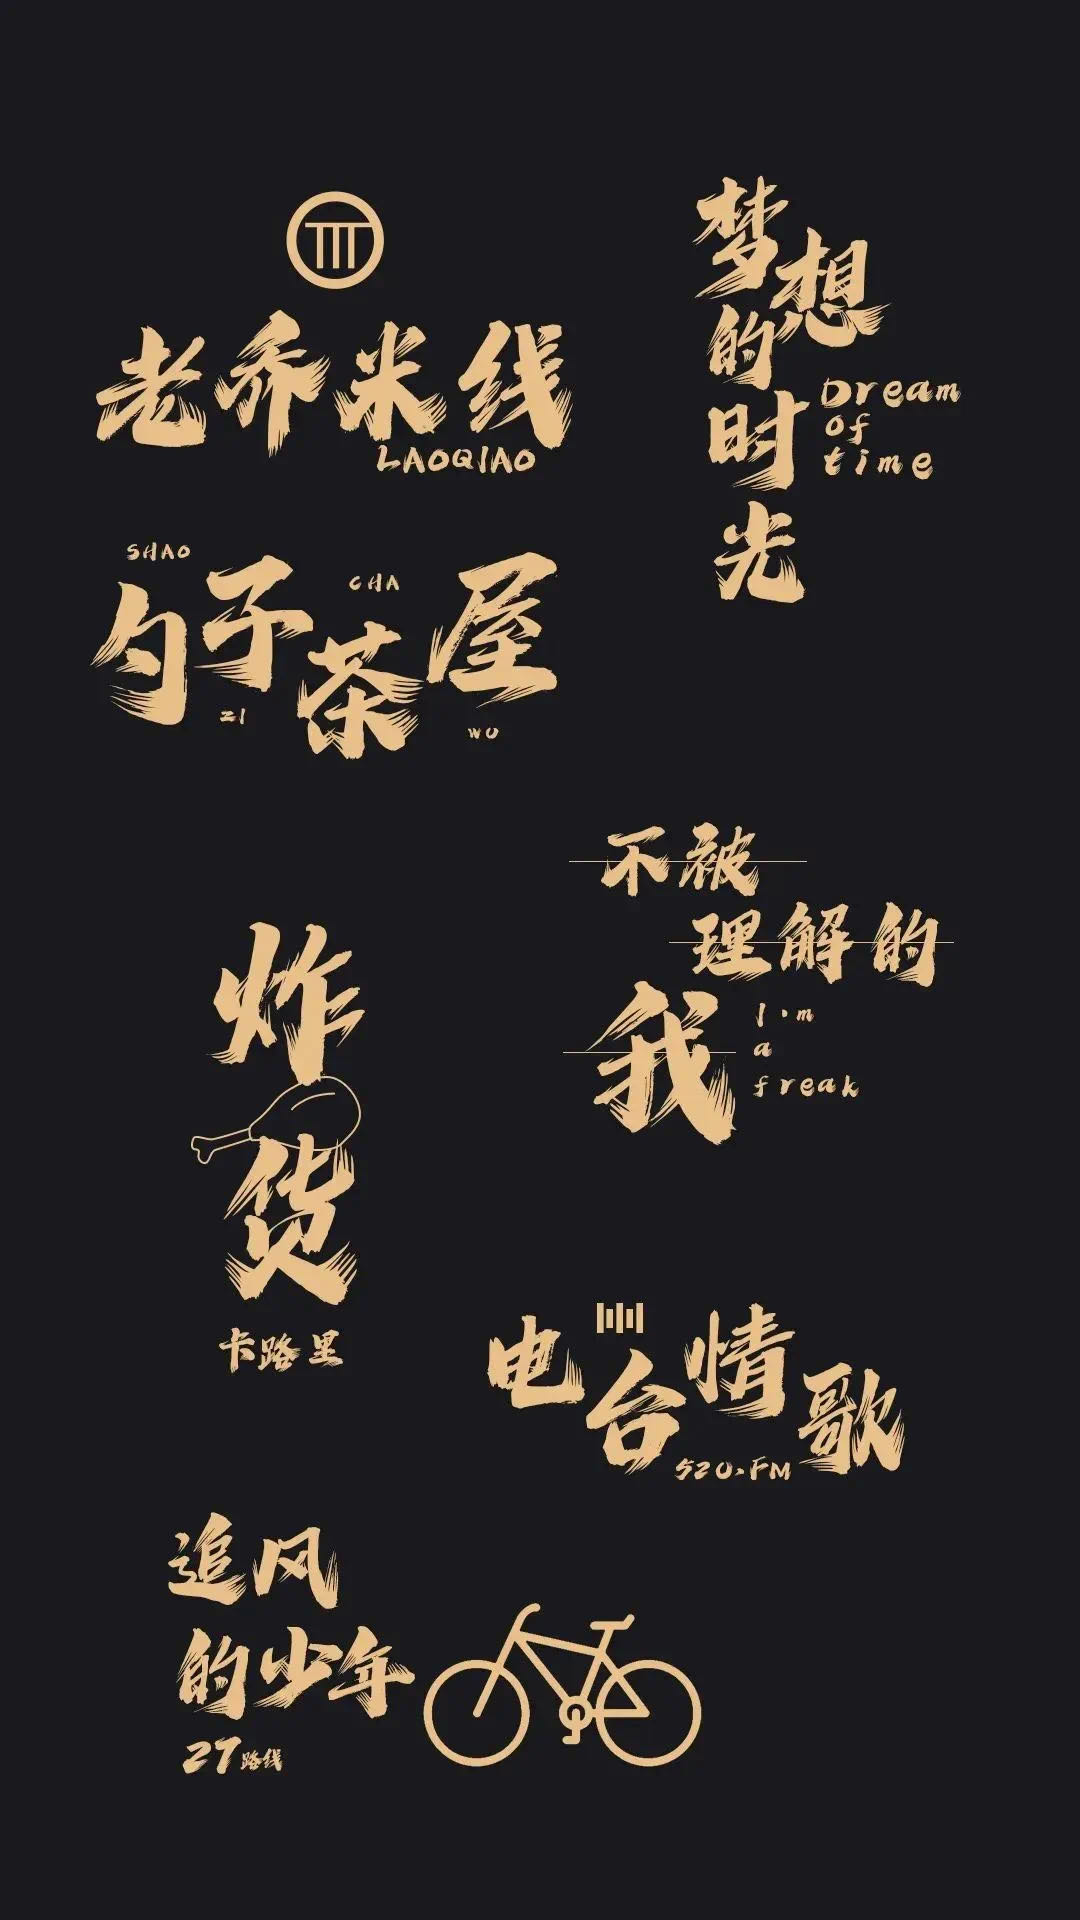 老乔米线
LAOQIAO
梦想
的
时
光
Dream
of
time
SHAO
CHA
勺子茶屋
ZI
WU
不被
理解的
我
I'm
a
freak
炸
货
卡路里
电台情歌
520.FM
追风
的少年
27路线